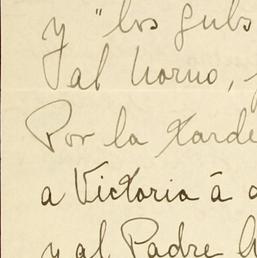 y "los
al horno,
Por la tarde
a Victoria á
y al Padre